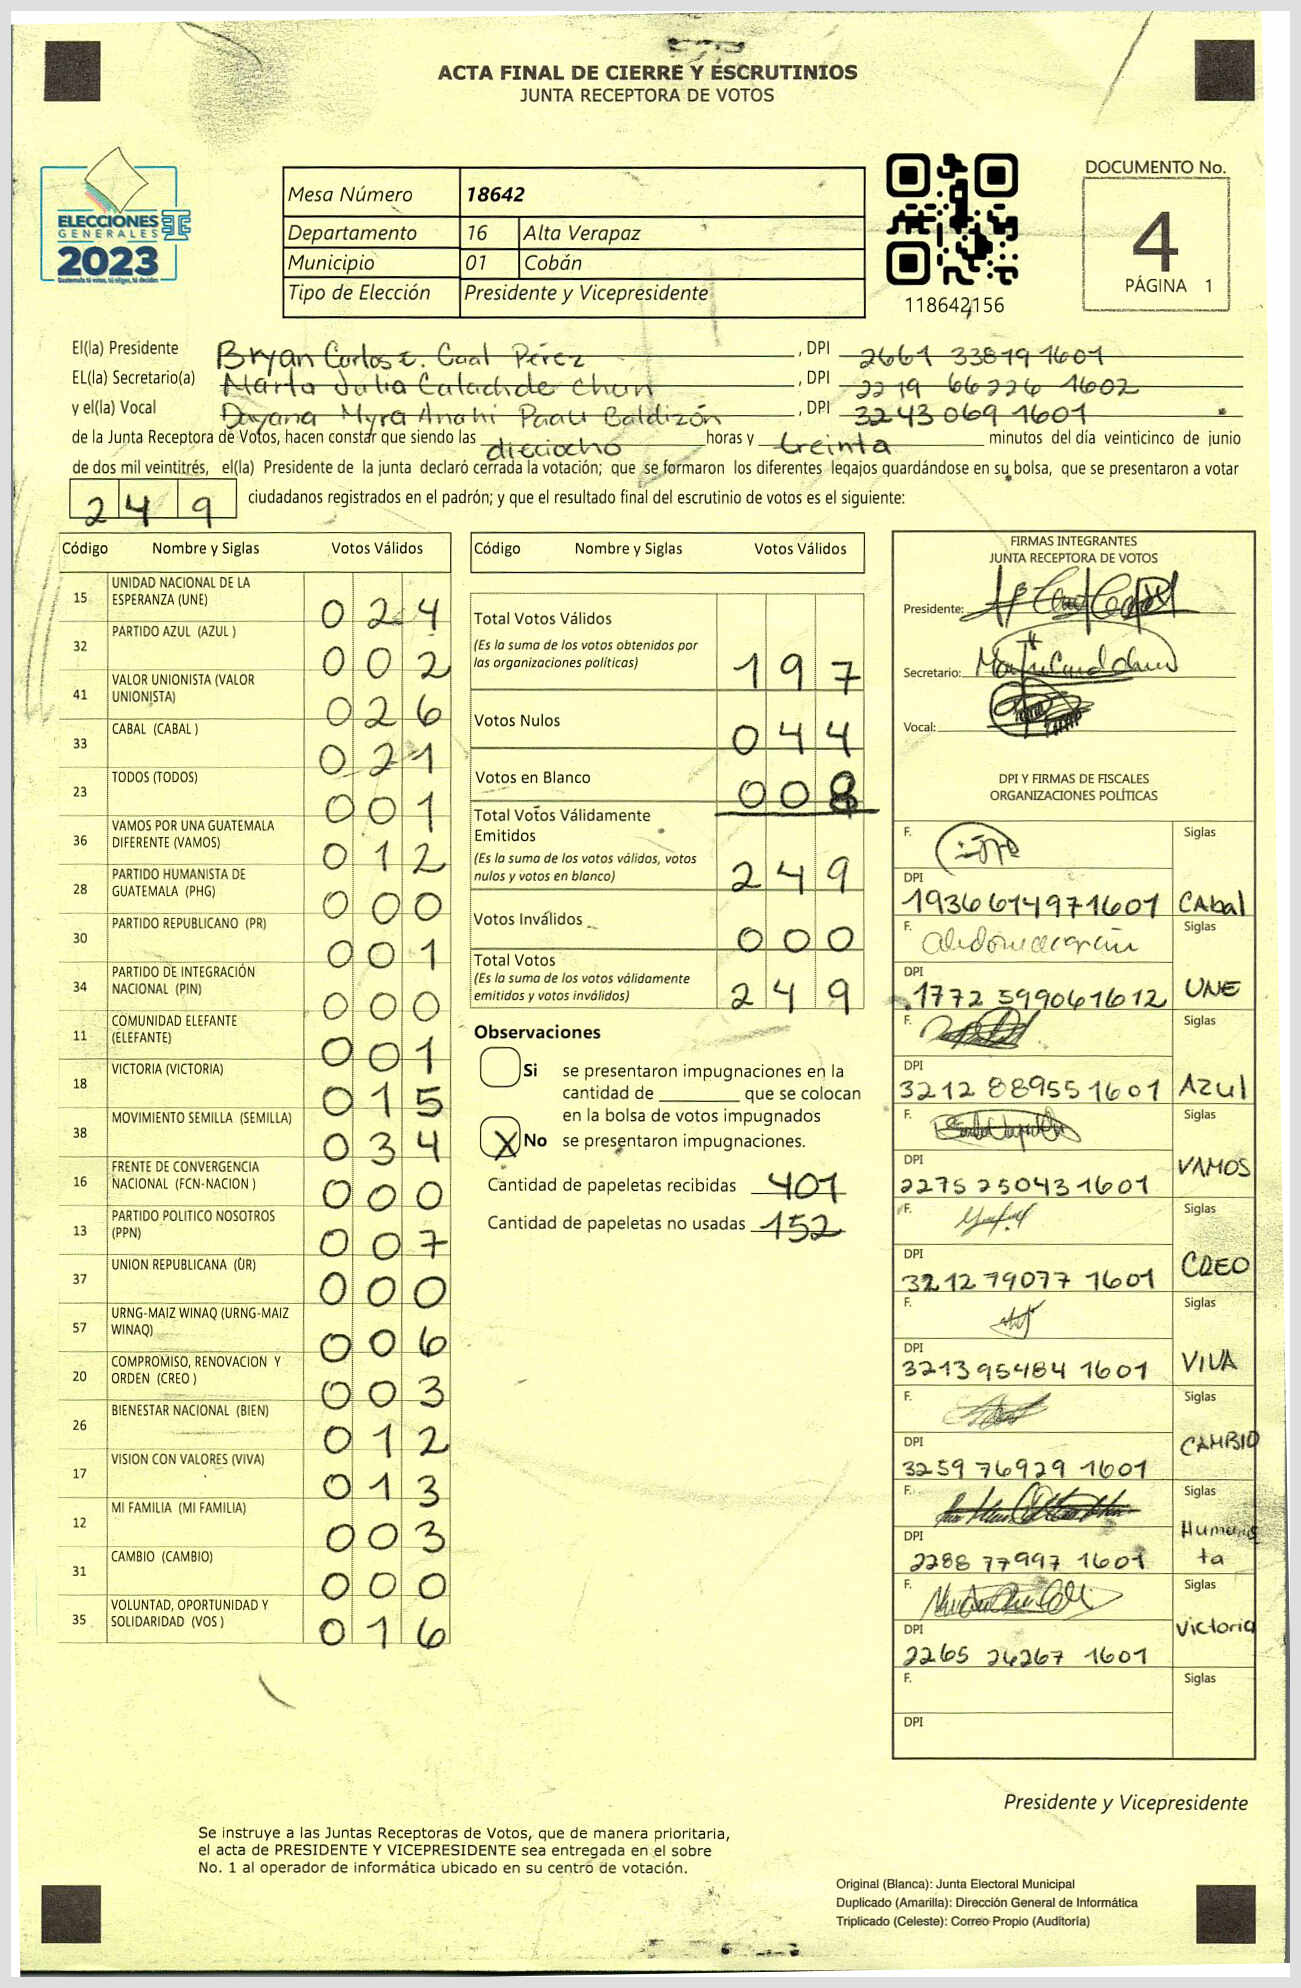 ACTA FINAL DE CIERRE Y ESCRUTINIOS
JUNTA RECEPTORA DE VOTOS
ELECCIONES
GENERALES
2023
Mesa Número 18642
Departamento 16 Alta Verapaz
Municipio 01 Cobán
Tipo de Elección Presidente y Vicepresidente
118642156
DOCUMENTO No.
4
PÁGINA 1
El(la) Presidente Bryan Carlos E. Caal Pérez, DPI 2661 33819 1601
EL(la) Secretario(a) Marta Julia Calachde Chun, DPI 2219 66226 1602
y el(la) Vocal Dayana Myra Anahi Paau Baldizón, DPI 3243 069 1601
de la Junta Receptora de Votos, hacen constar que siendo las dieciocho horas y treinta minutos del día veinticinco de junio
de dos mil veintitrés, el(la) Presidente de la junta declaró cerrada la votación; que se formaron los diferentes legajos guardándose en su bolsa, que se presentaron a votar
249 ciudadanos registrados en el padrón; y que el resultado final del escrutinio de votos es el siguiente:
Código Nombre y Siglas Votos Válidos
15 UNIDAD NACIONAL DE LA ESPERANZA (UNE) 024
32 PARTIDO AZUL (AZUL ) 002
41 VALOR UNIONISTA (VALOR UNIONISTA) 026
33 CABAL (CABAL ) 021
23 TODOS (TODOS) 001
36 VAMOS POR UNA GUATEMALA DIFERENTE (VAMOS) 012
28 PARTIDO HUMANISTA DE GUATEMALA (PHG) 000
30 PARTIDO REPUBLICANO (PR) 001
34 PARTIDO DE INTEGRACIÓN NACIONAL (PIN) 000
11 COMUNIDAD ELEFANTE (ELEFANTE) 001
18 VICTORIA (VICTORIA) 015
38 MOVIMIENTO SEMILLA (SEMILLA) 034
16 FRENTE DE CONVERGENCIA NACIONAL (FCN-NACION ) 000
13 PARTIDO POLITICO NOSOTROS (PPN) 007
37 UNION REPUBLICANA (UR) 000
57 URNG-MAIZ WINAQ (URNG-MAIZ WINAQ) 006
20 COMPROMISO, RENOVACION Y ORDEN (CREO ) 003
26 BIENESTAR NACIONAL (BIEN) 012
17 VISION CON VALORES (VIVA) 013
12 MI FAMILIA (MI FAMILIA) 003
31 CAMBIO (CAMBIO) 000
35 VOLUNTAD, OPORTUNIDAD Y SOLIDARIDAD (VOS ) 016
Código Nombre y Siglas Votos Válidos
Total Votos Válidos
(Es la suma de los votos obtenidos por
las organizaciones políticas) 197
Votos Nulos 044
Votos en Blanco 008
Total Votos Válidamente
Emitidos
(Es la suma de los votos válidos, votos
nulos y votos en blanco) 249
Votos Inválidos 000
Total Votos
(Es la suma de los votos válidamente
emitidos y votos inválidos) 249
Observaciones
Si se presentaron impugnaciones en la
cantidad de ________ que se colocan
en la bolsa de votos impugnados
X No se presentaron impugnaciones.
Cantidad de papeletas recibidas 401
Cantidad de papeletas no usadas 152
FIRMAS INTEGRANTES
JUNTA RECEPTORA DE VOTOS
Presidente:
Secretario:
Vocal:
DPI Y FIRMAS DE FISCALES
ORGANIZACIONES POLÍTICAS
F. Siglas
DPI
1936614971601 CAbal
F. Siglas
DPI
1772 599061612 UNE
F. Siglas
DPI
3212 88955 1601 Azul
F. Siglas
DPI
2275 25043 1601 VAMOS
F. Siglas
DPI
3212 79077 1601 CREO
F. Siglas
DPI
3213 95484 1601 VIVA
F. Siglas
DPI
3259 76929 1601 CAMBIO
F. Siglas
DPI
2288 77997 1601 Humanista
F. Siglas
DPI
2265 26267 1601 Victoria
F. Siglas
DPI
Presidente y Vicepresidente
Se instruye a las Juntas Receptoras de Votos, que de manera prioritaria,
el acta de PRESIDENTE Y VICEPRESIDENTE sea entregada en el sobre
No. 1 al operador de informática ubicado en su centro de votación.
Original (Blanca): Junta Electoral Municipal
Duplicado (Amarilla): Dirección General de Informática
Triplicado (Celeste): Correo Propio (Auditoría)